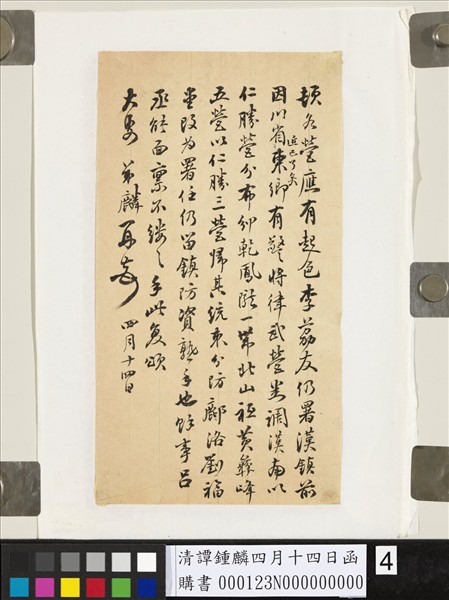 頓各營應有起色李荔友仍署漢鎮前
因川省東鄉有警將律武營盡調漢南以
近已了矣
仁勝營分布邠乾鳳隴一帶北山祗黃彝峰
五營以仁勝三營歸其統束分防鄜洛劉福
堂改為署任仍留鎮防資熟手也餘事呂
丞能面稟不縷〻手此复頌
大安 弟麟 四月十四日
清譚鍾麟四月十四日函
購書 000123N000000000
4